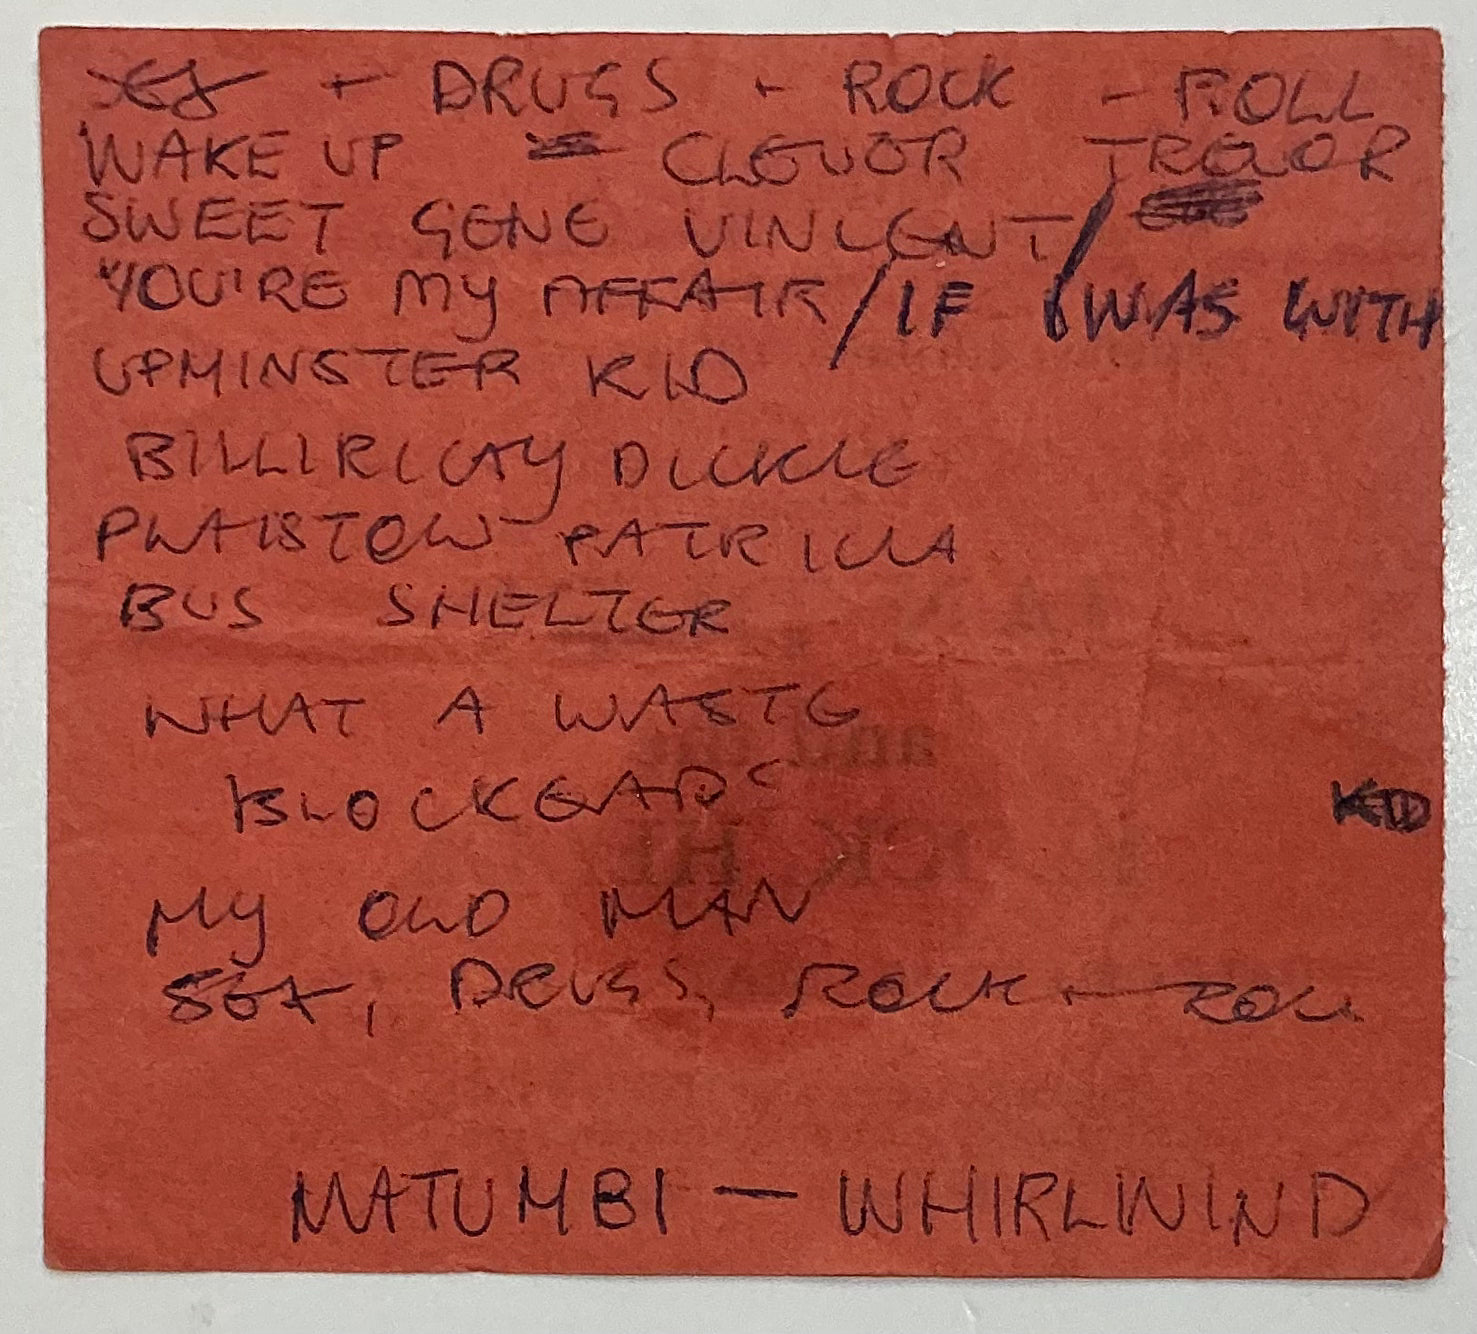 SEX + DRUGS + ROCK - ROLL
WAKE UP CLEVOR TREVOR
SWEET GENE VINCENT /
YOU'RE MY AFFAIR / IF I WAS WITH
UPMINSTER KID
BILLIRICAY DICKIE
PLAISTOW PATRICIA
BUS SHELTER
WHAT A WASTE
BLOCKEADS
KID
MY OLD MAN
SEX, DRUGS, ROCK + ROLL
MATUMBI — WHIRLWIND